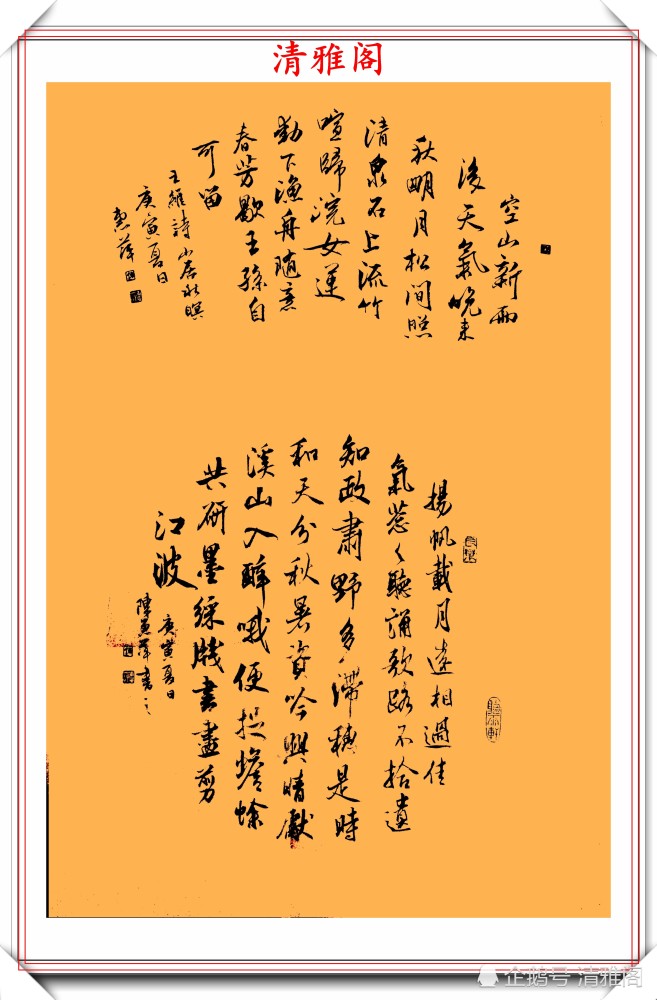 清雅阁
空山新雨
後天氣晚来
秋明月松间照
清泉石上流竹
喧歸浣女蓮
動下漁舟随意
春芳歇王孫自
可留
王維詩山居秋暝
庚寅夏日
惠萍
揚帆載月遠相過佳
氣葱々聽誦歌路不拾遺
知政肅野多滞穗是時
和天分秋暑資吟興晴獻
溪山入醉哦便捉蟾蜍
共研墨綵牋書盡剪
江波
庚寅夏日
陳惠萍書之
企鹅号 清雅阁